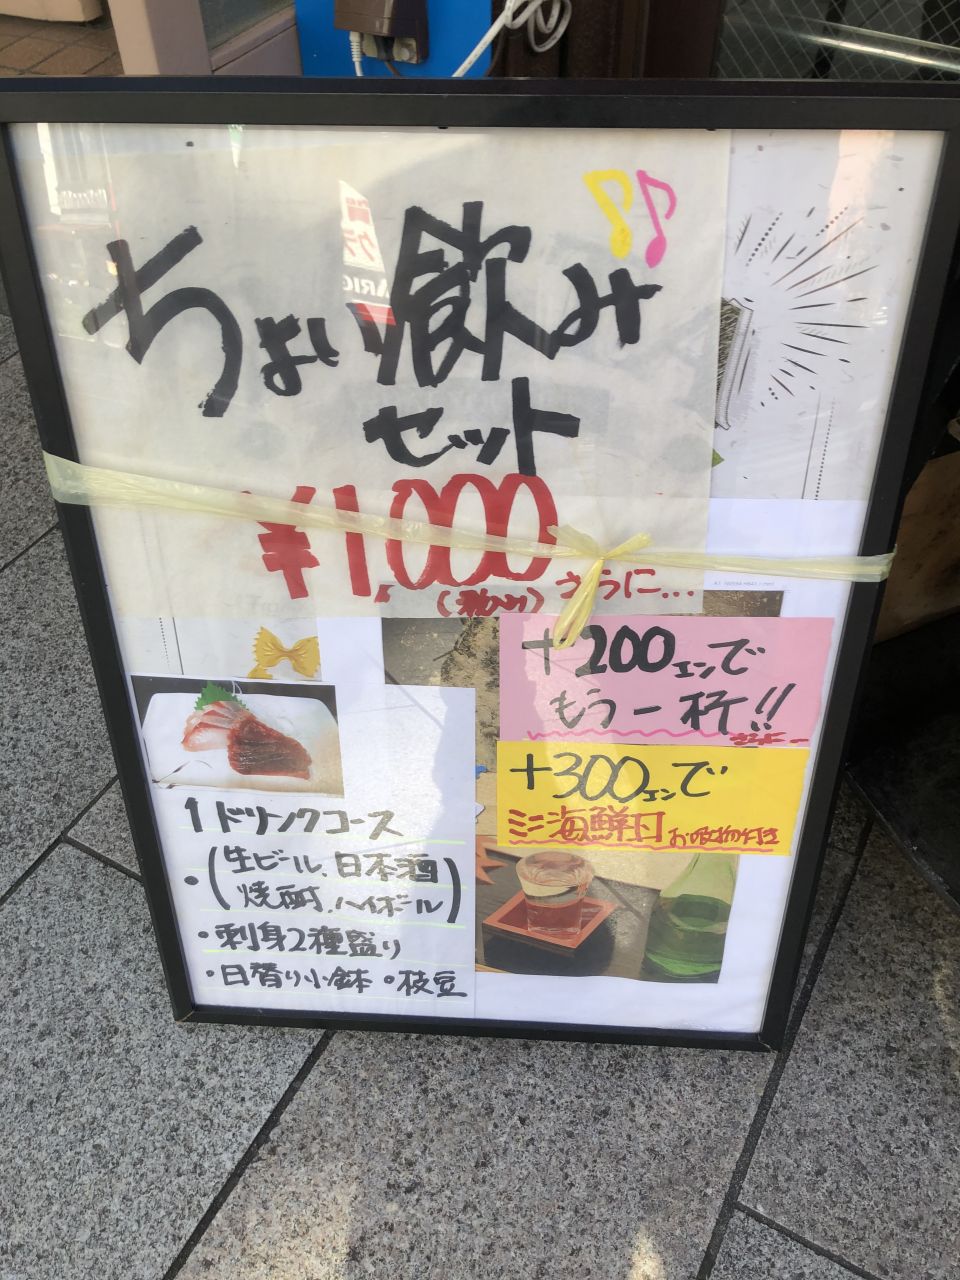 ちょい飲み
セット
¥1,000
(税込)
さらに...
+200エンで
もう一杯!!
+300エンで
ミニ海鮮丼 お吸物付き
1ドリンクコース
・(生ビール、日本酒
焼酎、ハイボール)
・刺身2種盛り
・日替り小鉢 ・枝豆